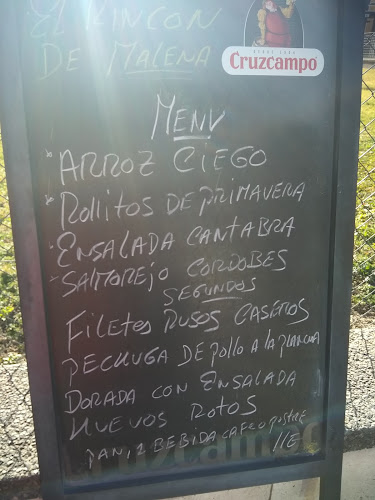 EL RINCON
DE MALENA
DESDE 1904
Cruzcampo
MENU
ARROZ CIEGO
ROllITOS DE PRIMAVERA
ENSALADA CANTABRA
SALMOREJO CORDOBES
SEGUNDOS
FILETES RUSOS CASEROS
PECHUGA DE POllO A lA PLANCHA
DORADA CON ENSALADA
HUEVOS ROTOS
PAN, 1 BEBIDA CAFE O POSTRE
11E
Cruzcampo